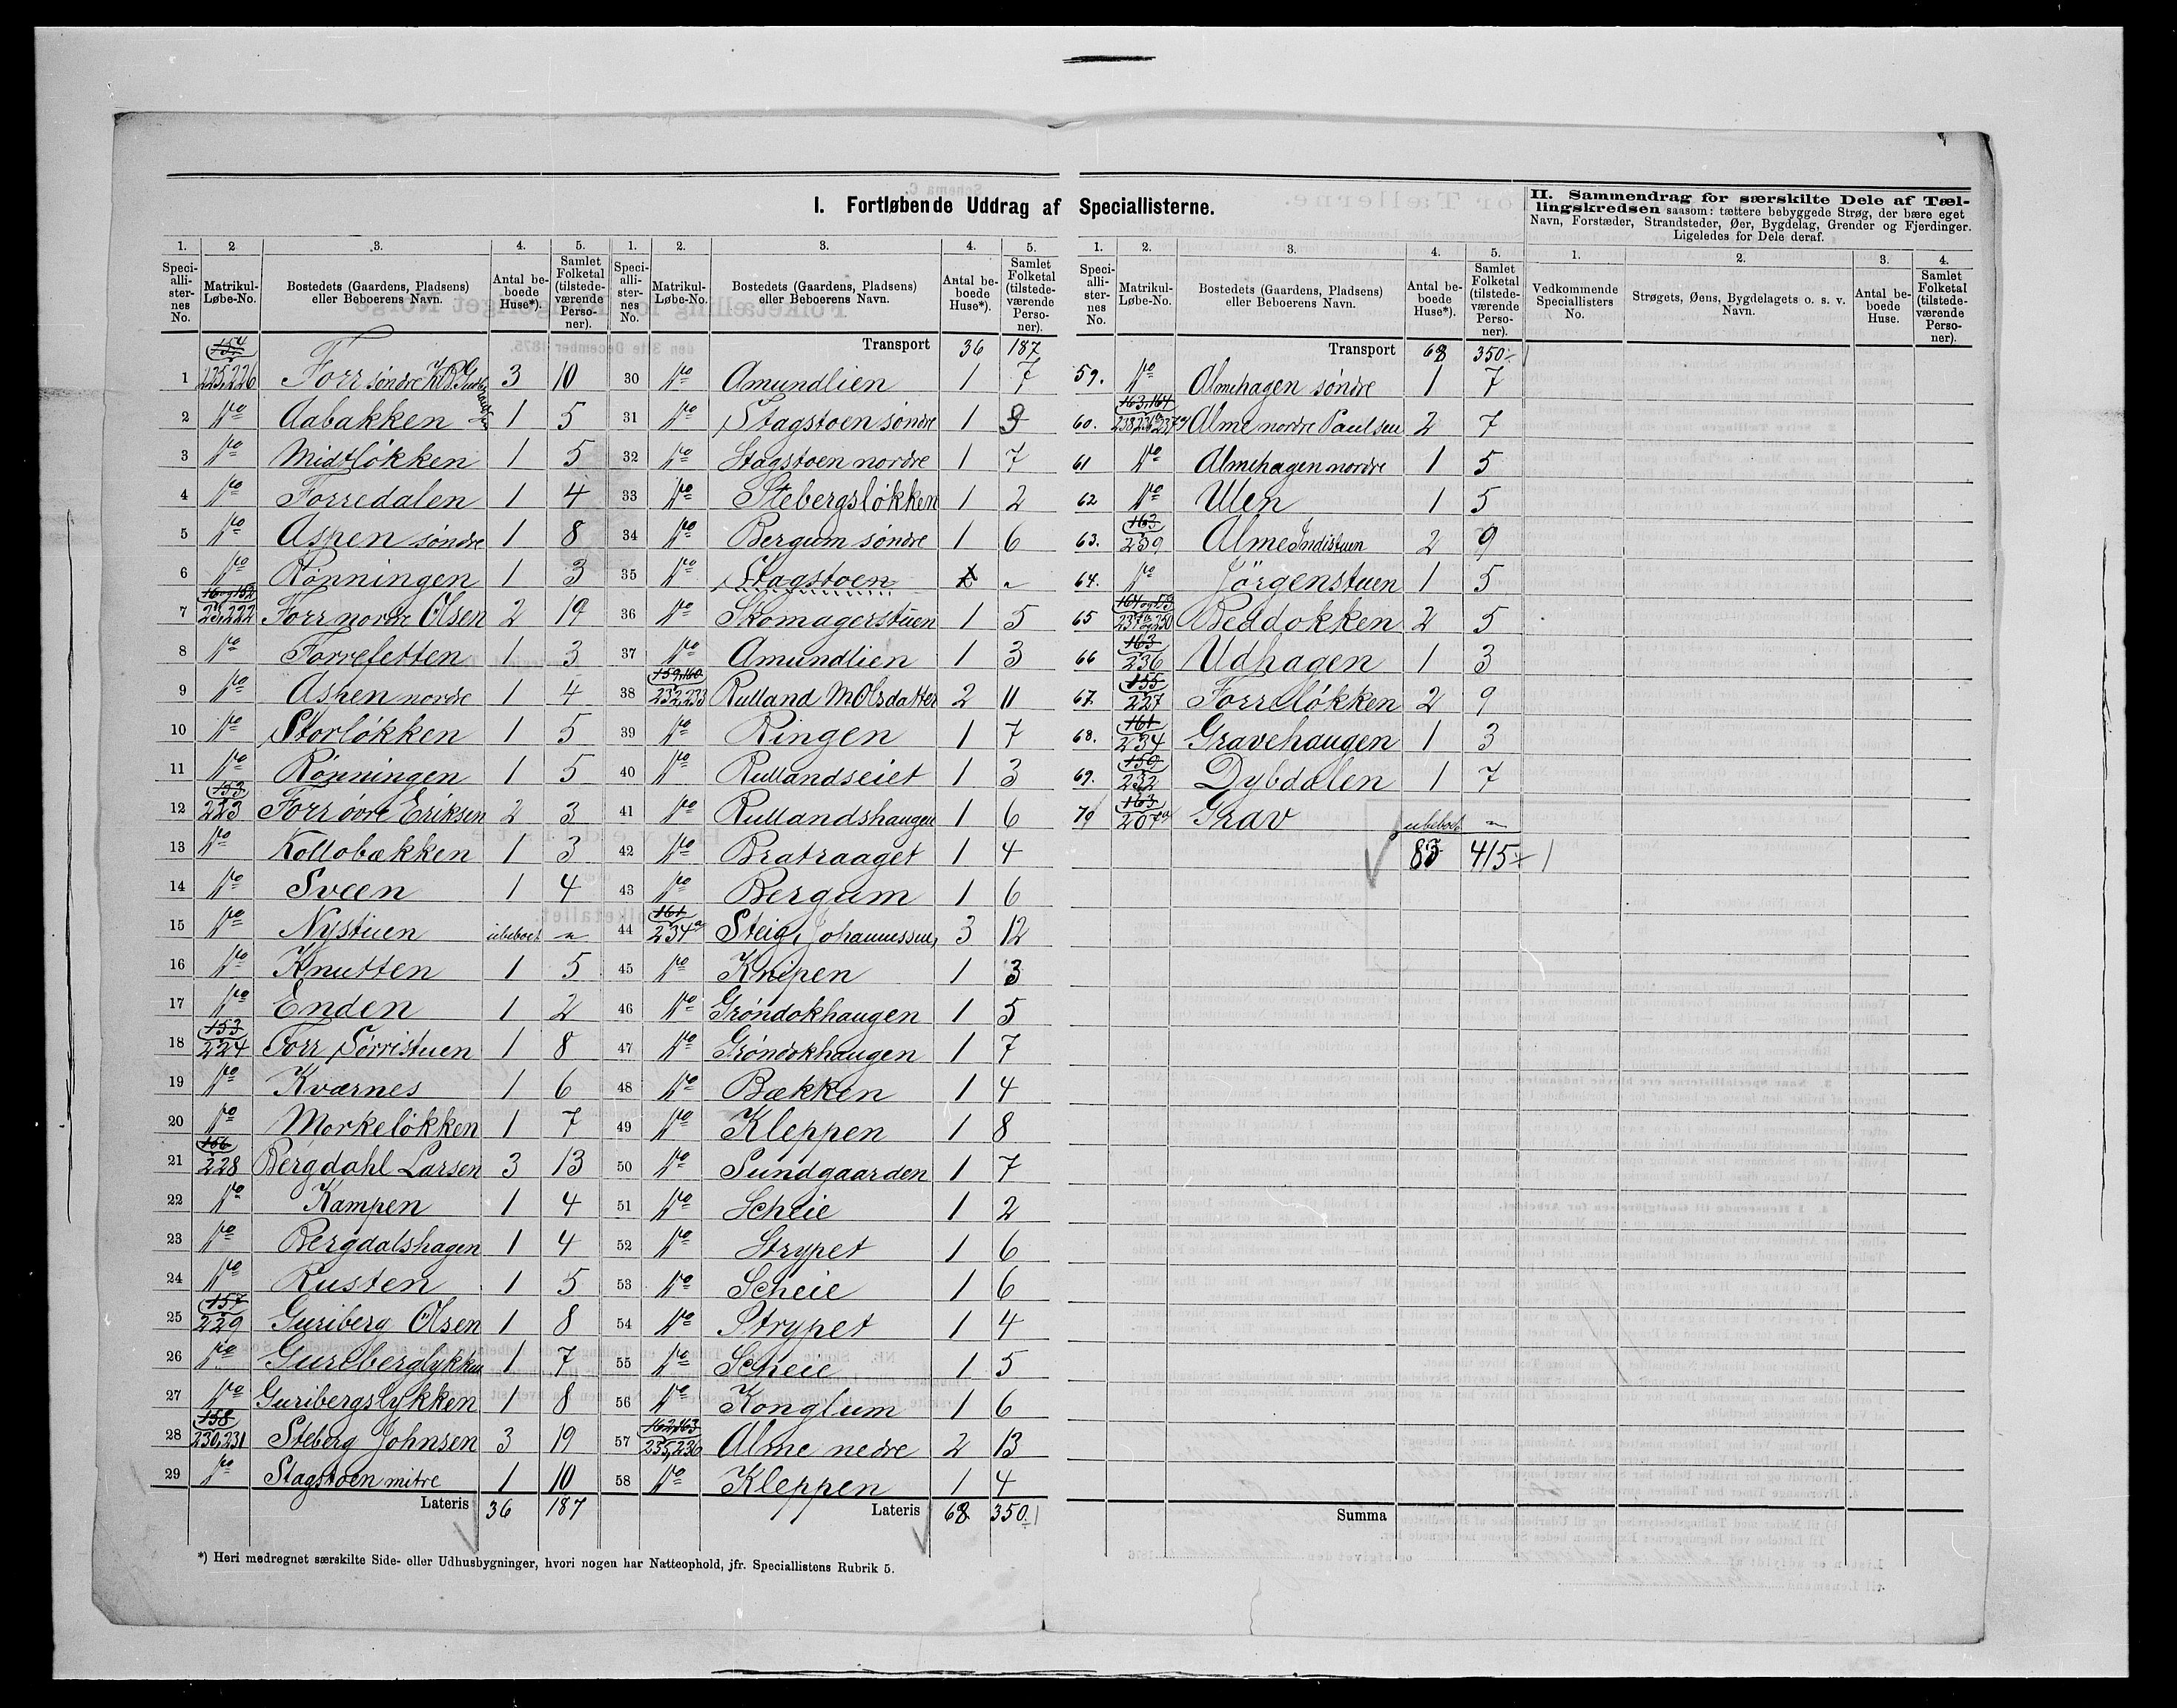 I. Fortløbende Uddrag af Speciallisterne.
II. Sammendrag for særskilte Dele af Tæl-
lingskredsen saasom: tættere bebyggede Strøg, der bære eget
Navn, Forstæder, Strandsteder, Øer, Bygdelag, Grender og Fjerdinger.
Ligeledes for Dele deraf.
1. 2. 3. 4. 5.
Speciallisternes No. Matrikul-Løbe-No. Bostedets (Gaardens, Pladsens) eller Beboerens Navn. Antal beboede Huse*). Samlet Folketal (tilstedeværende Personer).
154
1 225,226 Forr søndre 3 10
2 do Aabakken 1 5
3 do Midtløkken 1 5
4 do Forredalen 1 4
5 do Aspen søndre 1 8
6 do Rønningen 1 3
7 Forr nordre Olsen 2 19
8 do Forrefetten 1 3
9 do Aspen nordre 1 4
10 do Storløkken 1 5
11 do Rønningen 1 5
153
12 223 Forr øvre Eriksen 2 3
13 do Kollobækken 1 3
14 do Sveen 1 4
15 do Nystuen ubeboet "
16 do Knutten 1 5
17 do Enden 1 2
153
18 224 Forr Sørristuen 1 8
19 do Kværnes 1 6
20 do Morkeløkken 1 7
156
21 228 Bergdahl Larsen 3 13
22 do Kampen 1 4
23 do Bergdalshagen 1 4
24 do Rusten 1 5
157
25 229 Guriberg Olsen 1 8
26 do Guriberglykken 1 7
27 do Guribergslykken 1 8
158
28 230,231 Steberg Johnsen 3 19
29 do Stagstoen mitre 1 10
Lateris 36 187
1. 2. 3. 4. 5.
Speciallisternes No. Matrikul-Løbe-No. Bostedets (Gaardens, Pladsens) eller Beboerens Navn. Antal beboede Huse*). Samlet Folketal (tilstedeværende Personer).
Transport 36 187
30 do Amundlien 1 7
31 do Stagstoen søndre 1 9
32 do Stagstoen nordre 1 7
33 do Stebergsløkken 1 2
34 do Bergum søndre 1 6
35 do Stagstoen "
36 do Skomagerstuen 1 5
37 do Amundlien 1 3
159,160
38 232,233 Rulland M. Olsdatter 2 11
39 do Ringen 1 7
40 do Rullandseiet 1 3
41 do Rullandshaugen 1 6
42 do Bratraaget 1 4
43 do Bergum 1 6
161
44 234a Steig, Johannessen, 3 12
45 do Knipen 1 3
46 do Grøndokhaugen 1 5
47 do Grøndokhaugen 1 7
48 do Bækken 1 4
49 do Kleppen 1 8
50 do Sundgaarden 1 7
51 do Scheie 1 2
52 do Strypet 1 6
53 do Scheie 1 6
54 do Strypet 1 4
55 do Scheie 1 5
56 do Konglum 1 6
162,163
57 235,236 Alme nedre 2 13
58 do Kleppen 1 4
Lateris 68 350
1. 2. 3. 4. 5.
Speciallisternes No. Matrikul-Løbe-No. Bostedets (Gaardens, Pladsens) eller Beboerens Navn. Antal beboede Huse*). Samlet Folketal (tilstedeværende Personer).
Transport 68 350
59. do Almehagen søndre 1 7
163,164
60. Alme nordre Paulsen 2 7
61 do Almehagen nordre 1 5
62 do Ulen 1 5
163
63. 239 Alme Indistuen 2 9
64. do Jørgenstuen 1 5
65 Beddokken 2 5
163
66 236 Udhagen 1 3
155
67. 227 Forreløkken 2 9
161
68. 234 Gravehaugen 1 3
159
69. 232 Dybdalen 1 7
163
70 207a Grav ubeboet "
83 415
Summa
1. 2. 3. 4.
Vedkommende Speciallisters No. Strøgets, Øens, Bygdelagets o. s. v. Navn. Antal beboede Huse. Samlet Folketal (tilstedeværende Personer).
*) Heri medregnet særskilte Side- eller Udhusbygninger, hvori nogen har Natteophold, jfr. Speciallistens Rubrik 5.